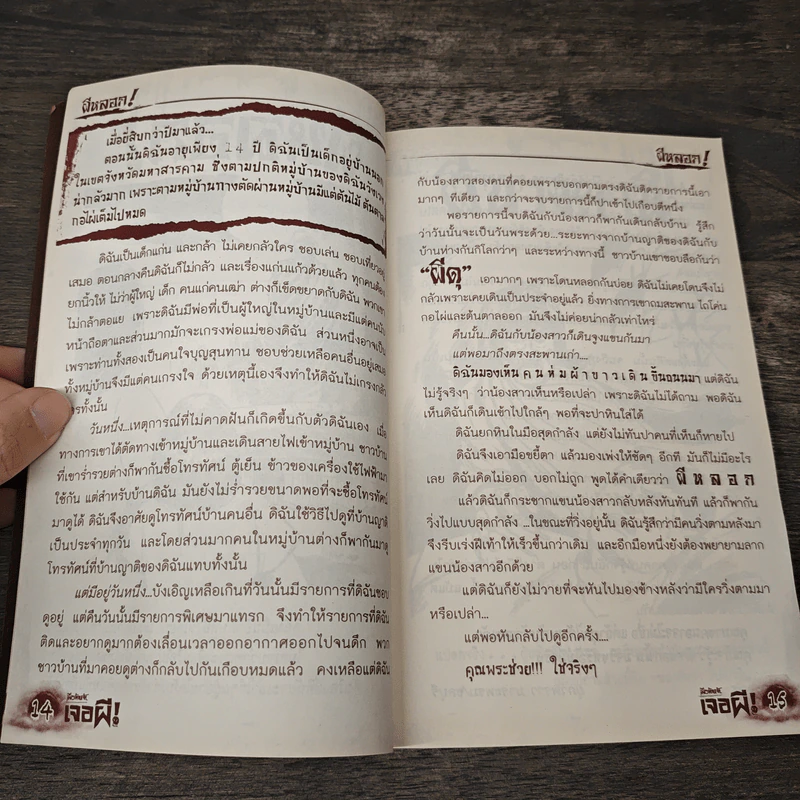 ผีหลอก!
เมื่อยี่สิบกว่าปีมาแล้ว...
ตอนนั้นดิฉันอายุเพียง 14 ปี ดิฉันเป็นเด็กอยู่บ้านนอก
ในเขตจังหวัดมหาสารคาม ซึ่งตามปกติหมู่บ้านของดิฉันวังเวง
น่ากลัวมาก เพราะตามหมู่บ้านทางตัดผ่านหมู่บ้านมีแต่ต้นไม้ ต้นตาล
กอไผ่เต็มไปหมด
ดิฉันเป็นเด็กแก่น และกล้า ไม่เคยกลัวใคร ชอบเล่น ชอบเที่ยวอยู่
เสมอ ตอนกลางคืนดิฉันก็ไม่กลัว และเรื่องแก่นแก้วด้วยแล้ว ทุกคนต้อง
ยกนิ้วให้ ไม่ว่าผู้ใหญ่ เด็ก คนแก่คนเฒ่า ต่างก็เข็ดขยาดกับดิฉัน พวกเขา
ไม่กล้าตอแย เพราะดิฉันมีพ่อที่เป็นผู้ใหญ่ในหมู่บ้านและมีแต่คนนับ
หน้าถือตาและส่วนมากมักจะเกรงพ่อแม่ของดิฉัน ส่วนหนึ่งอาจเป็น
เพราะท่านทั้งสองเป็นคนใจบุญสุนทาน ชอบช่วยเหลือคนอื่นอยู่เสมอ
ทั้งหมู่บ้านจึงมีแต่คนเกรงใจ ด้วยเหตุนี้เองจึงทำให้ดิฉันไม่เกรงกลัว
ใครทั้งนั้น
วันหนึ่ง...เหตุการณ์ที่ไม่คาดฝันก็เกิดขึ้นกับตัวดิฉันเอง เมื่อ
ทางการเขาได้ตัดทางเข้าหมู่บ้านและเดินสายไฟเข้าหมู่บ้าน ชาวบ้าน
ที่เขาร่ำรวยต่างก็พากันซื้อโทรทัศน์ ตู้เย็น ข้าวของเครื่องใช้ไฟฟ้ามา
ใช้กัน แต่สำหรับบ้านดิฉัน มันยังไม่ร่ำรวยขนาดพอที่จะซื้อโทรทัศน์
มาดูได้ ดิฉันจึงอาศัยดูโทรทัศน์บ้านคนอื่น ดิฉันใช้วิธีไปดูที่บ้านญาติ
เป็นประจำทุกวัน และโดยส่วนมากคนในหมู่บ้านต่างก็พากันมาดู
โทรทัศน์ที่บ้านญาติของดิฉันแทบทั้งนั้น
แต่มีอยู่วันหนึ่ง...บังเอิญเหลือเกินที่วันนั้นมีรายการที่ดิฉันชอบ
ดูอยู่ แต่คืนวันนั้นมีรายการพิเศษมาแทรก จึงทำให้รายการที่ดิฉัน
ติดและอยากดูมากต้องเลื่อนเวลาออกอากาศออกไปจนดึก พวก
ชาวบ้านที่มาคอยดูต่างก็กลับไปกันเกือบหมดแล้ว คงเหลือแต่ดิฉัน
14 เจอผี!
ผีหลอก!
กับน้องสาวสองคนที่คอยเพราะบอกตามตรงดิฉันติดรายการนี้เอา
มากๆ ทีเดียว และกว่าจะจบรายการนี้ก็ปาเข้าไปเกือบตีหนึ่ง
พอรายการนี้จบดิฉันกับน้องสาวก็พากันเดินกลับบ้าน รู้สึก
ว่าวันนั้นจะเป็นวันพระด้วย...ระยะทางจากบ้านญาติของดิฉันกับ
บ้านห่างกันกิโลกว่าๆ และระหว่างทางนี้ ชาวบ้านเขาขอบลือกันว่า
“ผีดุ” เอามากๆ เพราะโดนหลอกกันบ่อย ดิฉันไม่เคยโดนจึงไม่
กลัวเพราะเคยเดินเป็นประจำอยู่แล้ว ยิ่งทางการเขาถมสะพาน ไถโค่น
กอไผ่และต้นตาลออก มันจึงไม่ค่อยน่ากลัวเท่าไหร่
คืนนั้น...ดิฉันกับน้องสาวก็เดินจูงแขนกันมา
แต่พอมาถึงตรงสะพานเก่า....
ดิฉันมองเห็นคนห่มผ้าขาวเดินขึ้นถนนมา แต่ดิฉัน
ไม่รู้จริงๆ ว่าน้องสาวเห็นหรือเปล่า เพราะดิฉันไม่ได้ถาม พอดิฉัน
เห็นดิฉันก็เดินเข้าไปใกล้ๆ พอที่จะปาหินใส่ได้
ดิฉันยกหินในมือสุดกำลัง แต่ยังไม่ทันปาคนที่เห็นก็หายไป
ดิฉันจึงเอามือขยี้ตา แล้วมองเพ่งให้ชัดๆ อีกที มันก็ไม่มีอะไร
เลย ดิฉันคิดไม่ออก บอกไม่ถูก พูดได้คำเดียวว่า ผีหลอก
แล้วดิฉันก็กระชากแขนน้องสาวกลับหลังทันทันที แล้วก็พากัน
วิ่งไปแบบสุดกำลัง ...ในขณะที่วิ่งอยู่นั้น ดิฉันรู้สึกว่ามีคนวิ่งตามหลังมา
จึงรีบเร่งฝีเท้าให้เร็วขึ้นกว่าเดิม และอีกมือหนึ่งยังต้องพยายามลาก
แขนน้องสาวอีกด้วย
แต่ดิฉันก็ยังไม่วายที่จะหันไปมองข้างหลังว่ามีใครวิ่งตามมา
หรือเปล่า...
แต่พอหันกลับไปดูอีกครั้ง....
คุณพระช่วย!!! ใช่จริงๆ
เจอผี! 15